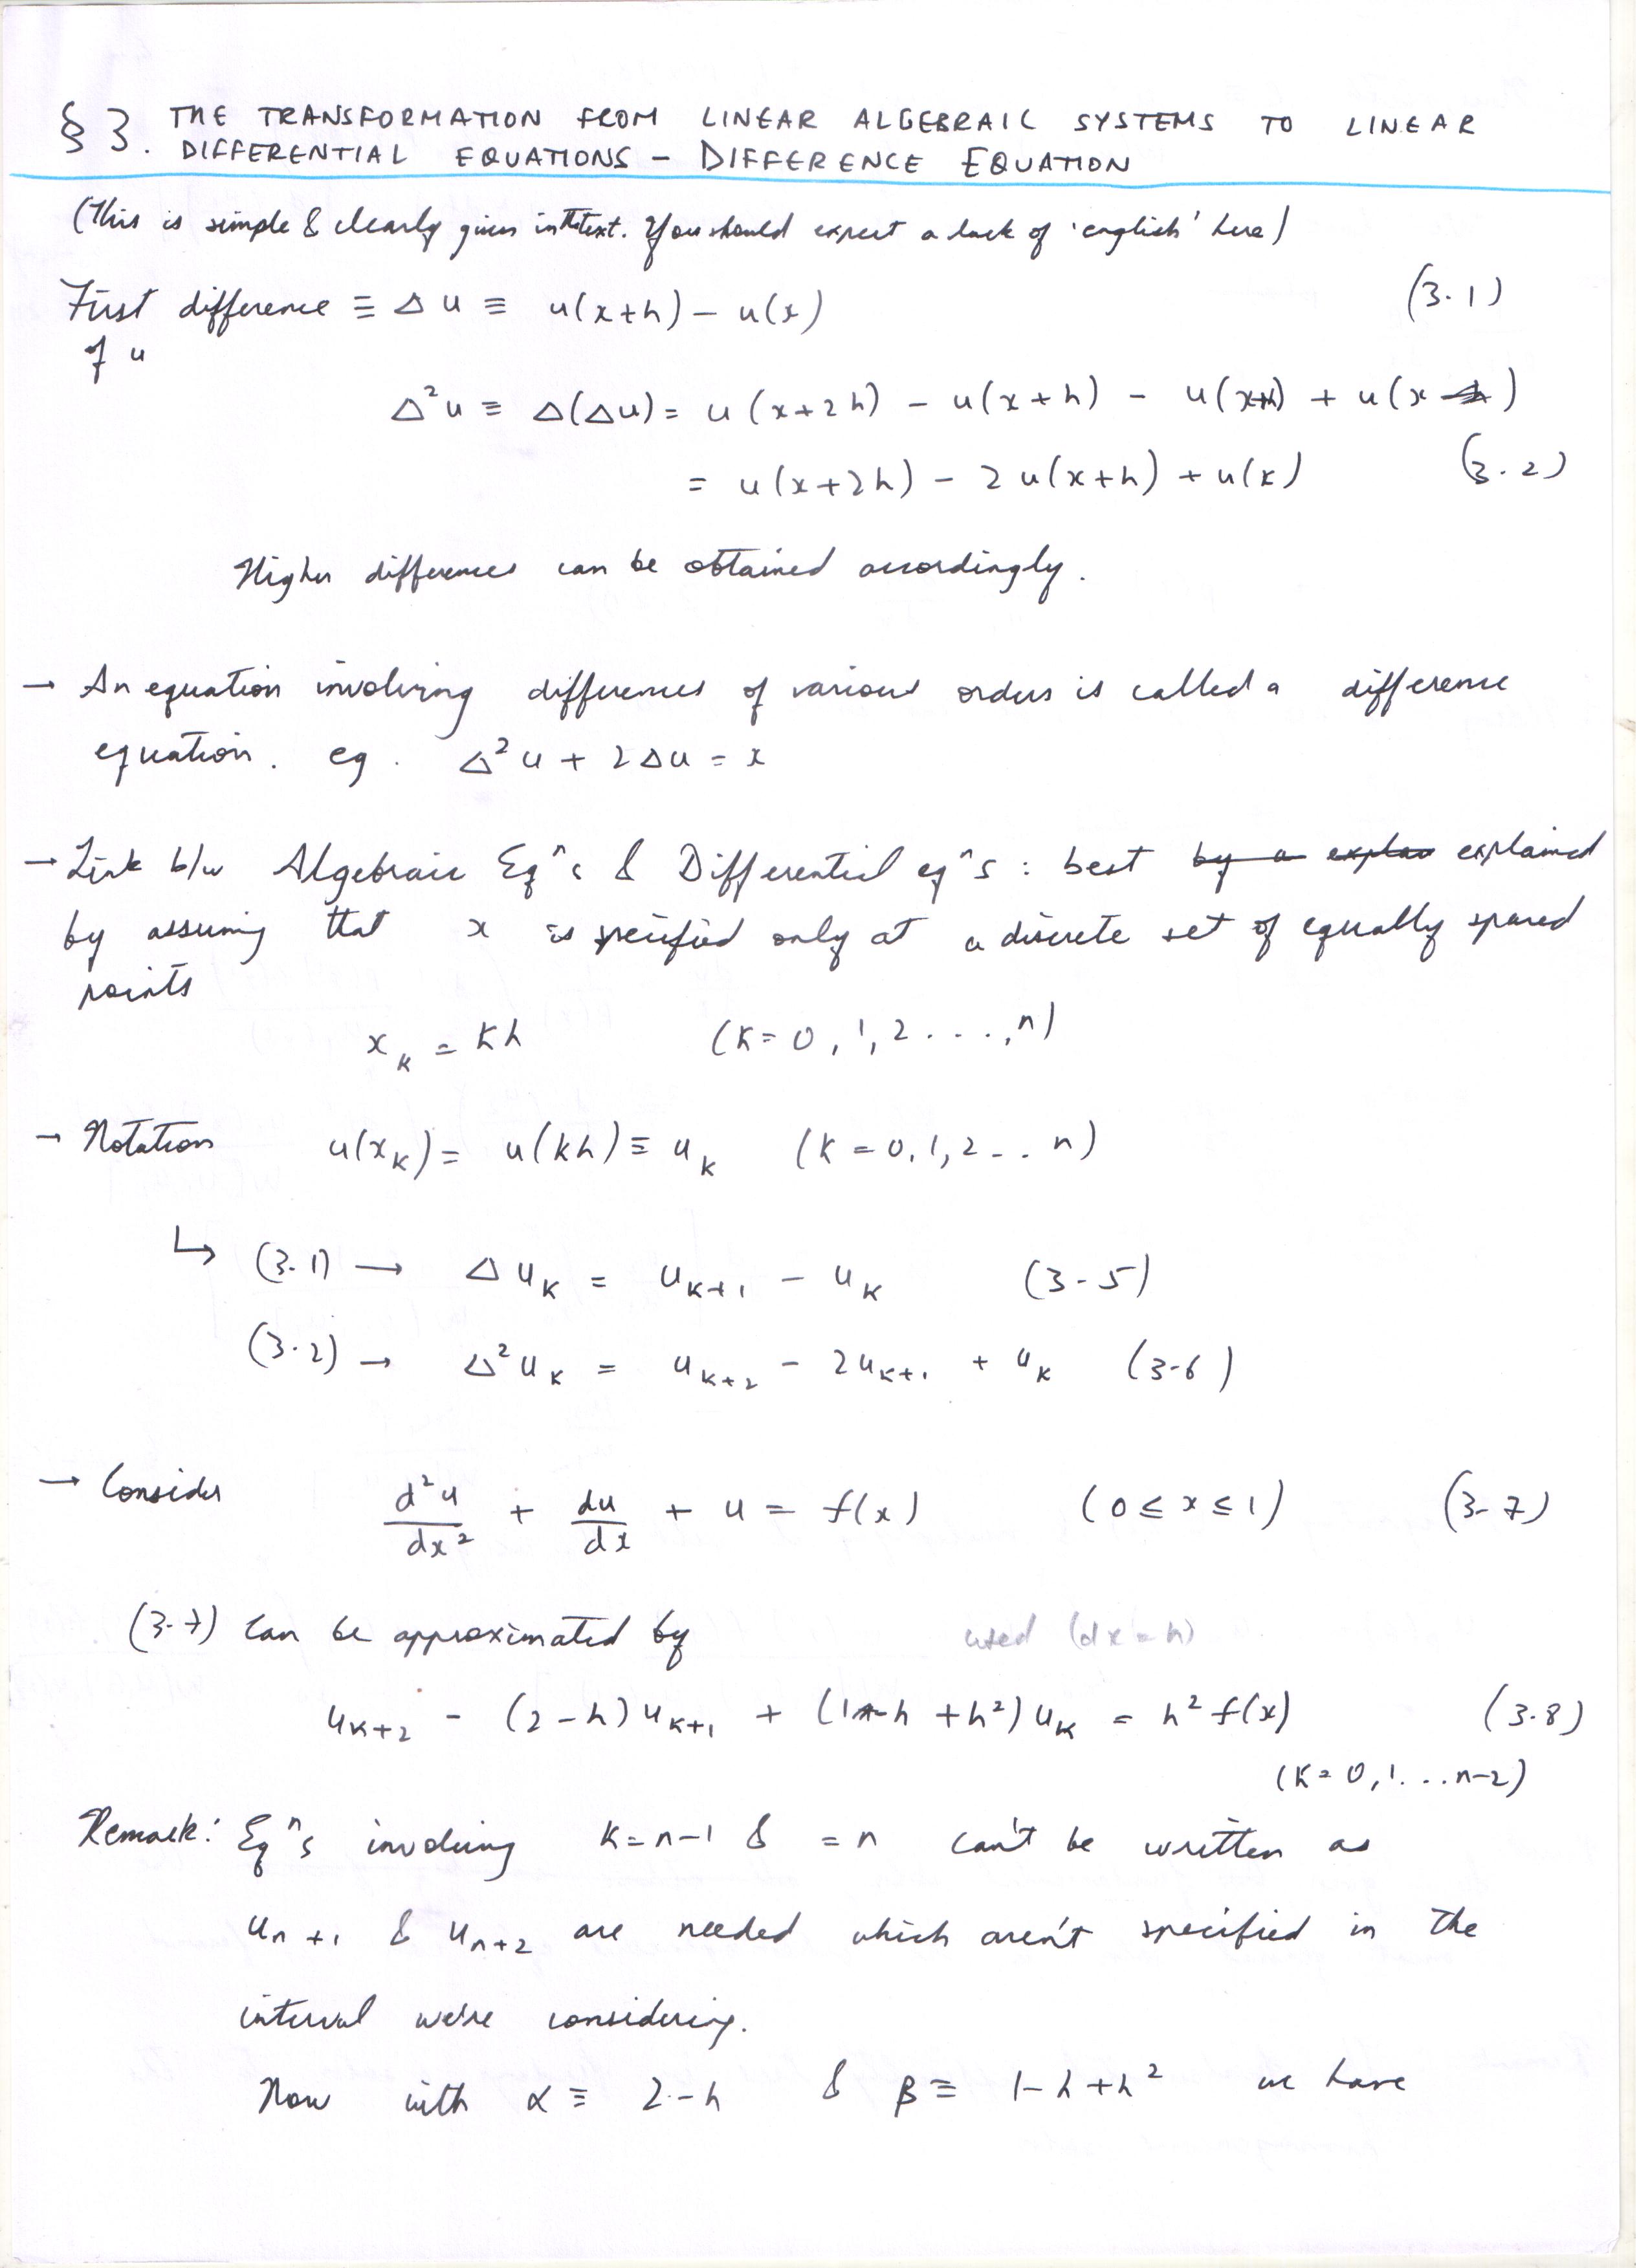 § 3. THE TRANSFORMATION FROM LINEAR ALGEBRAIC SYSTEMS TO LINEAR
DIFFERENTIAL EQUATIONS – DIFFERENCE EQUATION
(This is simple & clearly given in the text. You should expect a lack of 'english' here)
First difference ≡ Δ u ≡ u(x+h) – u(x) (3.1)
of u
Δ²u ≡ Δ(Δu) = u(x+2h) – u(x+h) – u(x+h) + u(x)
= u(x+2h) – 2u(x+h) + u(x) (3.2)
Higher differences can be obtained accordingly.
→ An equation involving differences of various orders is called a difference
equation. eg. Δ²u + 2Δu = x
→ Link b/w Algebraic Eqⁿs & Differential eqⁿs : best by a explan explained
by assuming that x is specified only at a discrete set of equally spaced
points
xₖ = kh (k = 0, 1, 2 . . . , n)
→ Notation u(xₖ) = u(kh) ≡ uₖ (k = 0, 1, 2 . . n)
↳ (3.1) → Δuₖ = uₖ₊₁ – uₖ (3-5)
(3.2) → Δ²uₖ = uₖ₊₂ – 2uₖ₊₁ + uₖ (3-6)
→ Consider d²u/dx² + du/dx + u = f(x) (0 ≤ x ≤ 1) (3-7)
(3-7) can be approximated by used (dx = h)
uₖ₊₂ – (2–h)uₖ₊₁ + (1–h+h²)uₖ = h² f(x) (3.8)
(k = 0, 1. . . n–2)
Remark: Eqⁿs involving k = n–1 & = n can't be written as
uₙ₊₁ & uₙ₊₂ are needed which aren't specified in the
interval we're considering.
Now with α ≡ 2–h & β ≡ 1–h+h² we have